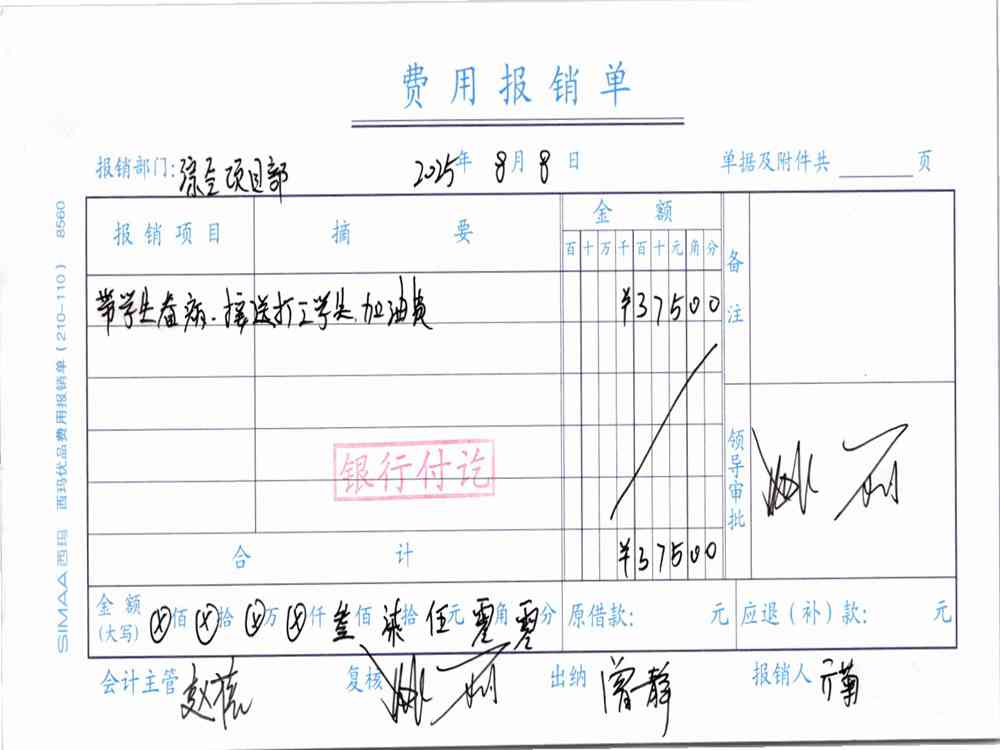 费用报销单
报销部门:综合项目部 2025年8月8日 单据及附件共 页
报销项目 摘要 金额 备注
百十万千百十元角分
带学生看病.接送打工学生.加油费 ¥37500
银行付讫
领导审批
合计 ¥37500
金额(大写) ⊗佰⊗拾⊗万⊗仟叁佰柒拾伍元零角零分 原借款: 元 应退(补)款: 元
会计主管 复核 出纳 曾静 报销人
SIMAA西玛 西玛优品费用报销单(210-110) 8560